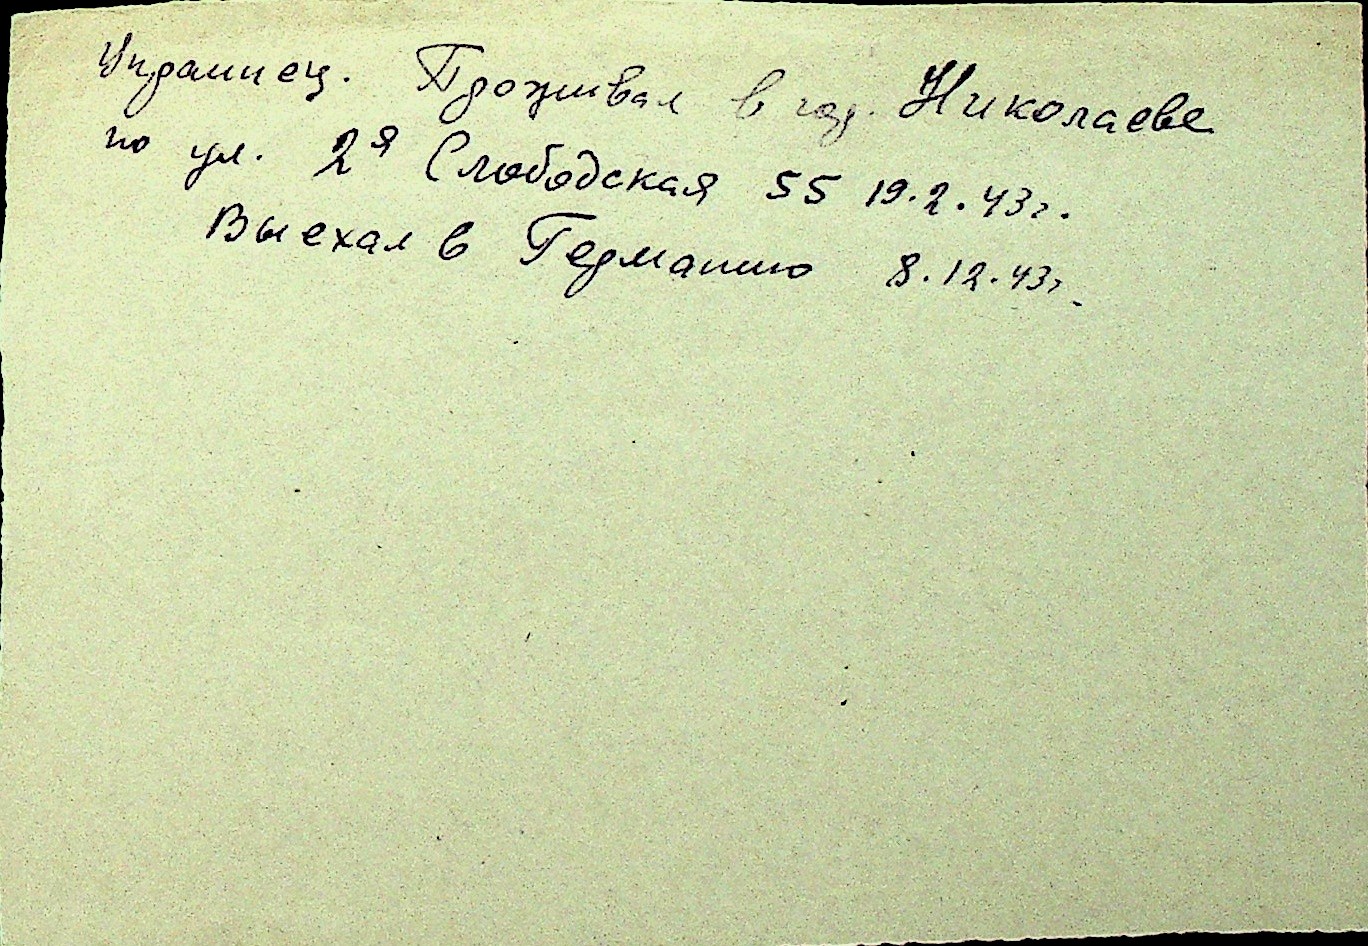 Украинец. Проживал в гор. Николаеве
по ул. 2я Слободская 55 19.2.43г.
Выехал в Германию 8.12.43г.